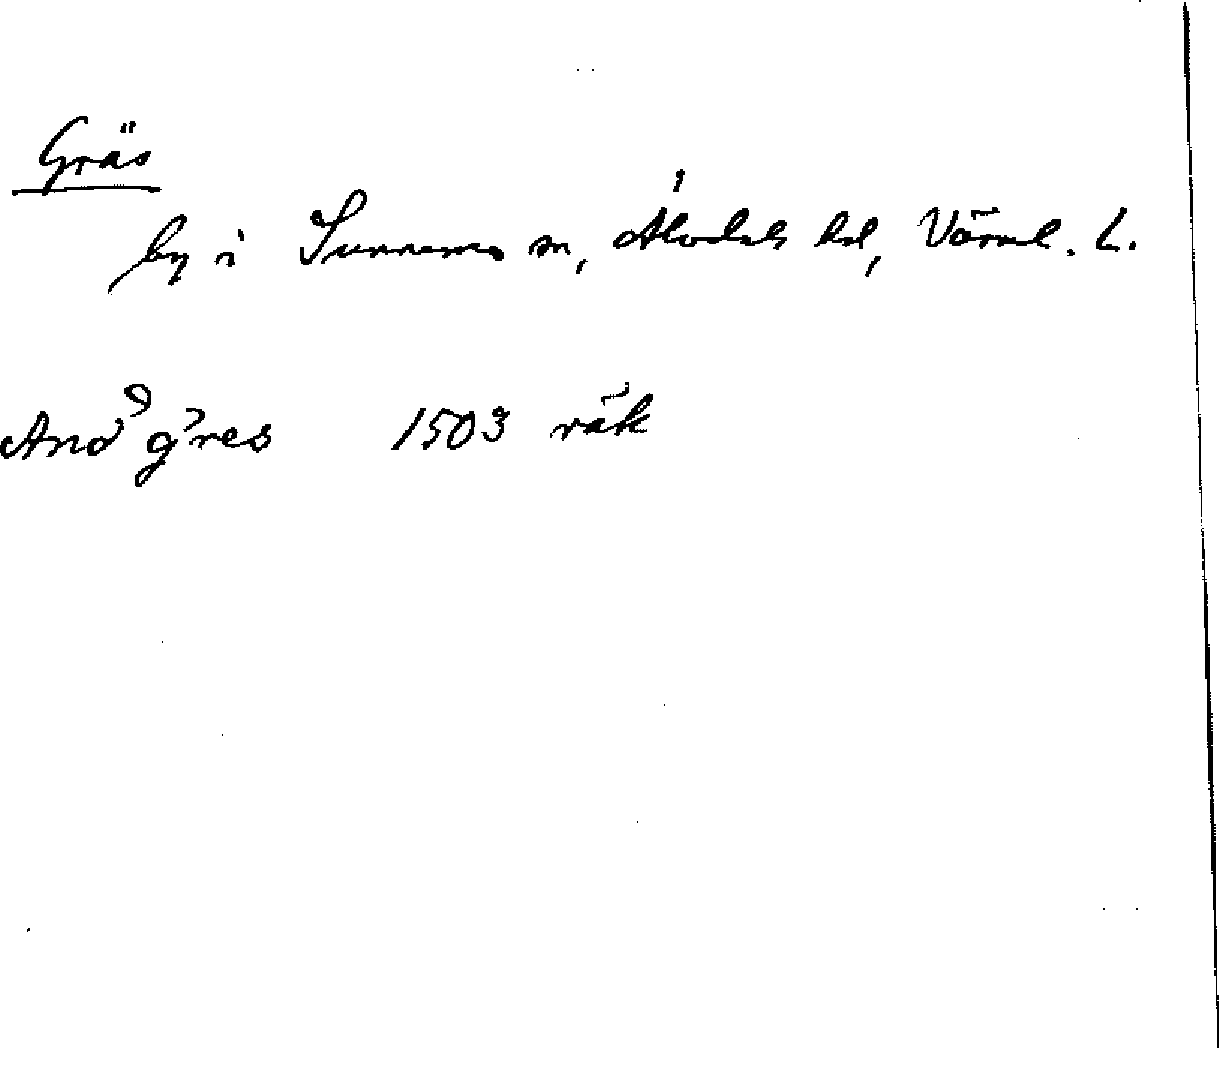 Gräs
by i Sunnemo sn, Älvdals hd, Värml. L.
And gres 1503 räk